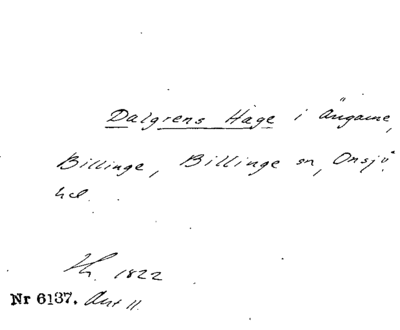 Dalgrens Hage i Ängarne,
Billinge, Billinge sn, Onsjö
hd.
1822
Nr 6137. Akt 11.